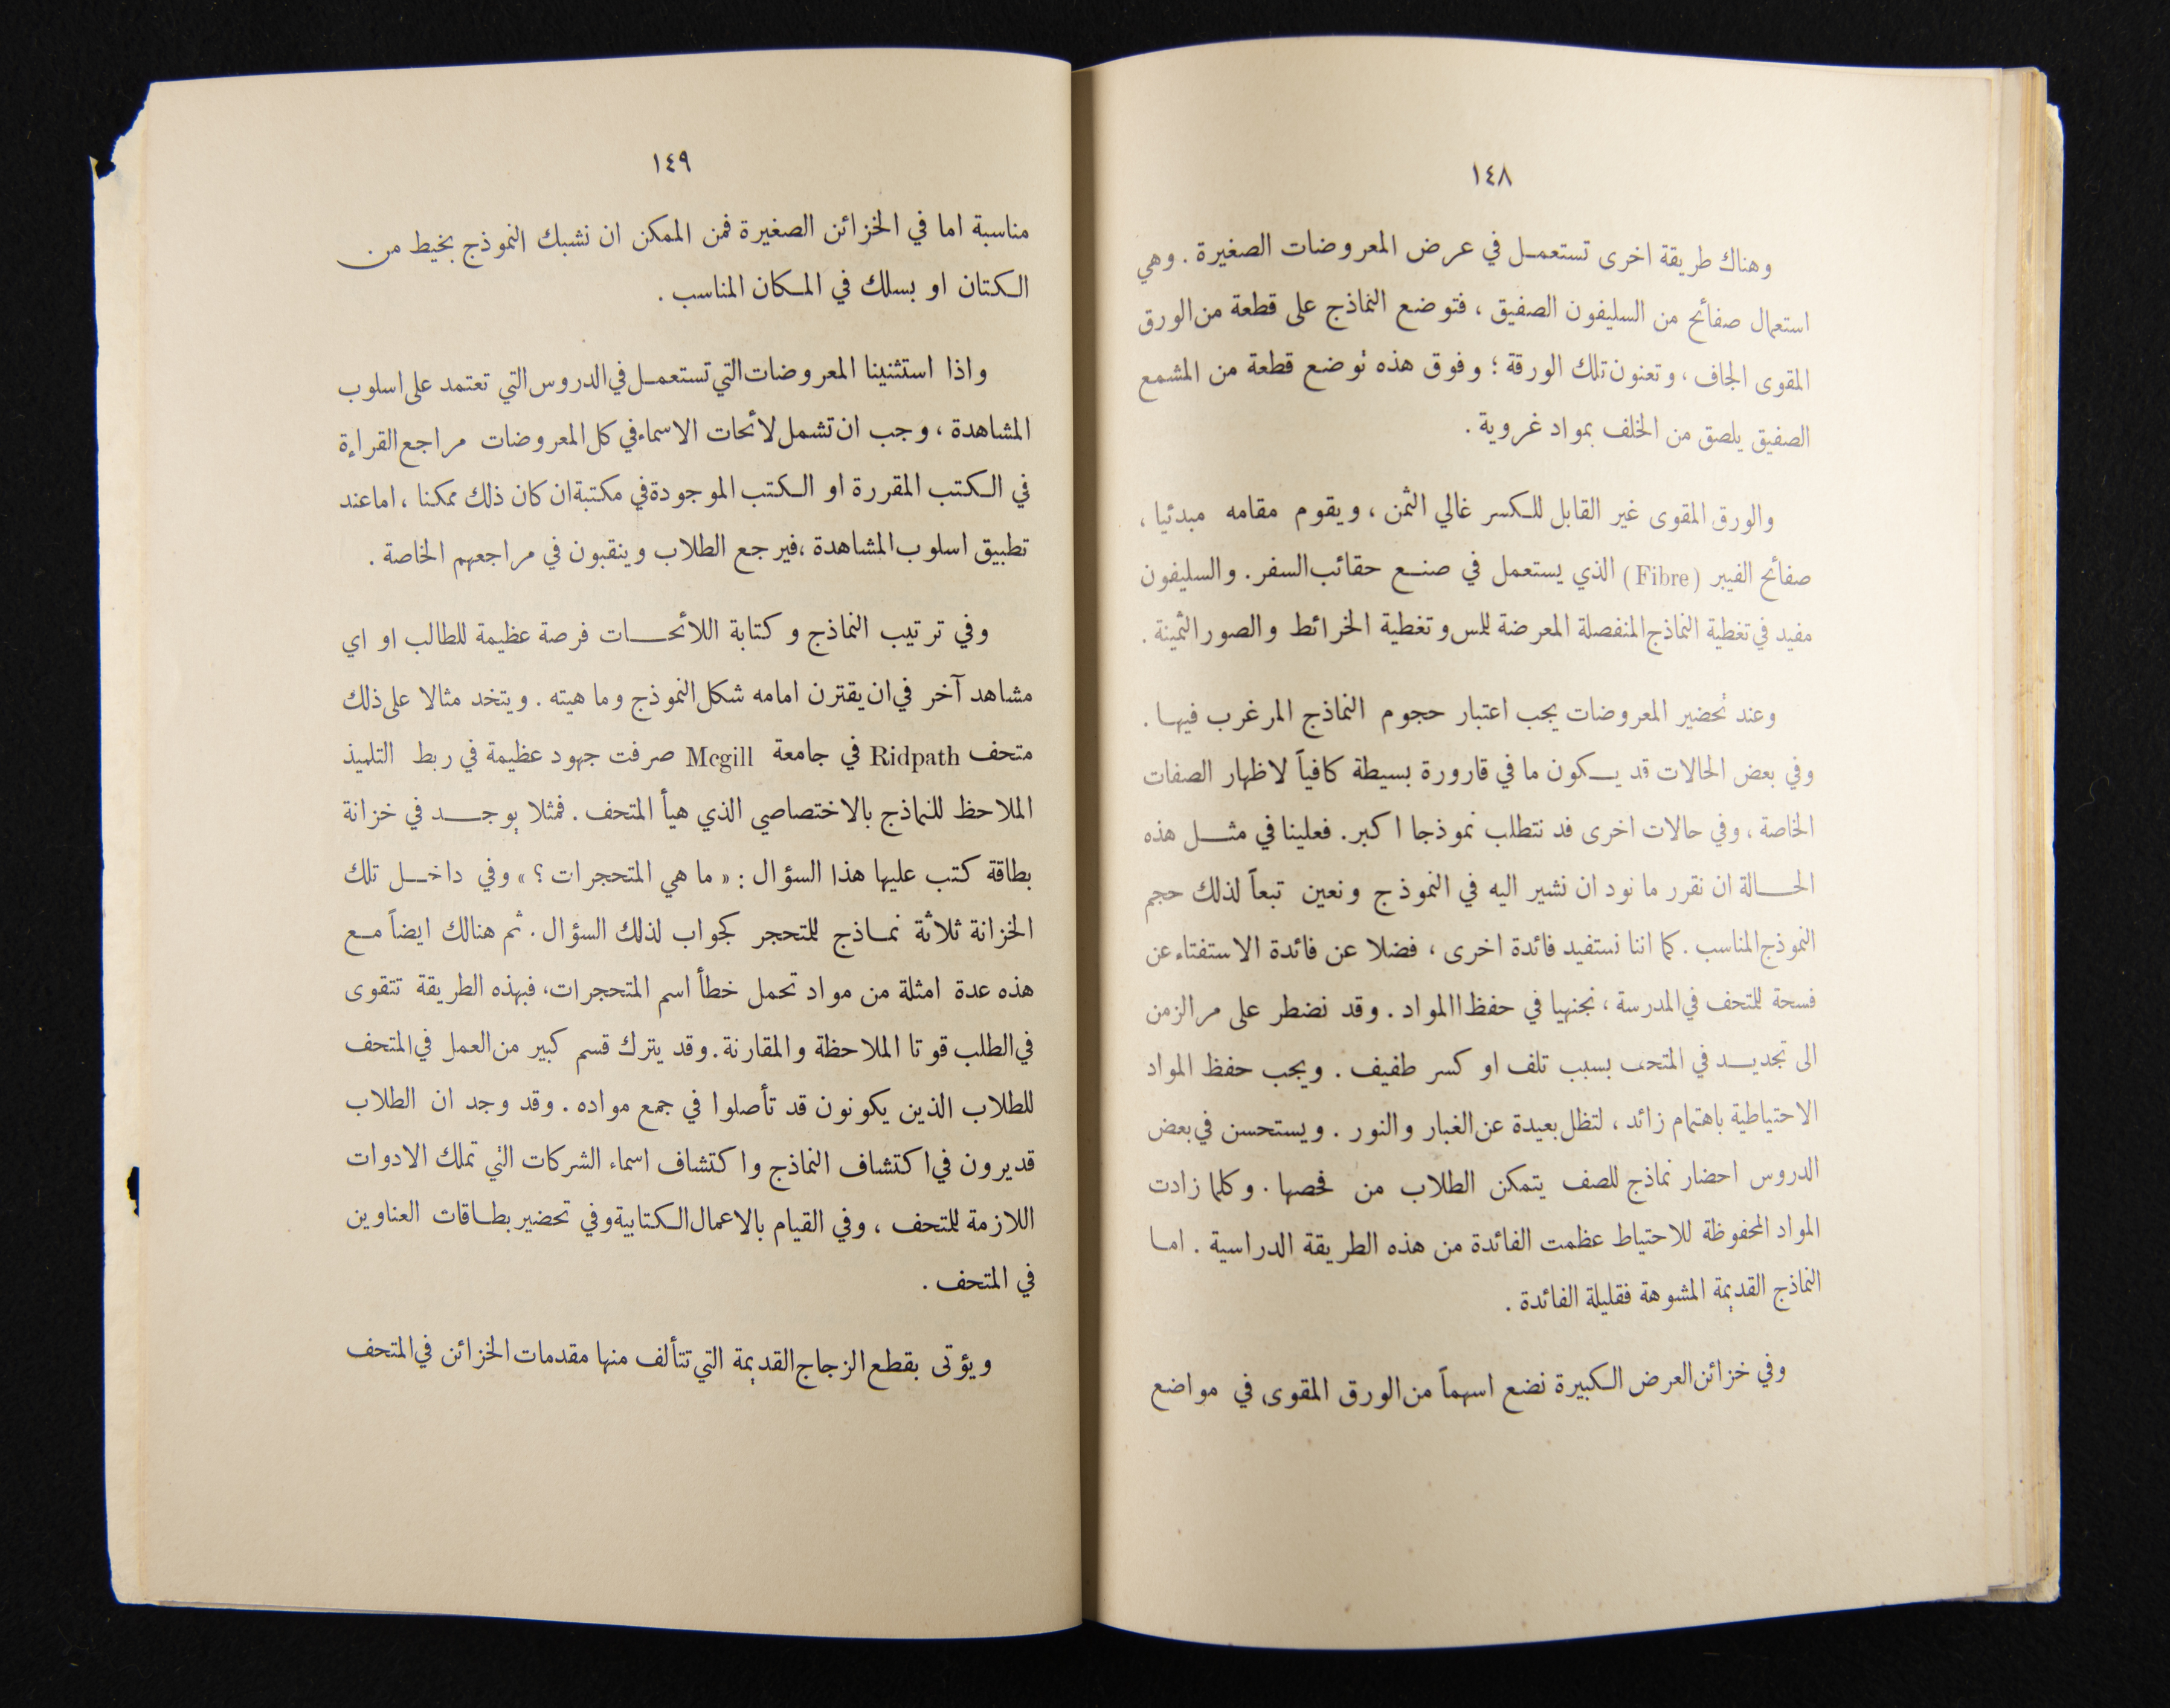 ١٤٨
وهناك طريقة اخرى تستعمل في عرض المعروضات الصغيرة . وهي
استعمال صفائح من السليفون الصفيق ، فتوضع النماذج على قطعة من الورق
المقوى الجاف ، وتعنون تلك الورقة ؛ وفوق هذه توضع قطعة من المشمع
الصفيق يلصق من الخلف بمواد غروية .
والورق المقوى غير القابل للكسر غالي الثمن ، ويقوم مقامه مبدئيا ،
صفائح الفيبر (Fibre) الذي يستعمل في صنع حقائب السفر . والسليفون
مفيد في تغطية النماذج المنفصلة المعرضة للمس وتغطية الخرائط والصور الثمينة .
وعند تحضير المعروضات يجب اعتبار حجوم النماذج المرغرب فيها .
وفي بعض الحالات قد يكون ما في قارورة بسيطة كافياً لاظهار الصفات
الخاصة ، وفي حالات اخرى فد نتطلب نموذجا اكبر . فعلينا في مثل هذه
الحالة ان نقرر ما نود ان نشير اليه في النموذج ونعين تبعاً لذلك حجم
النموذج المناسب . كما اننا نستفيد فائدة اخرى ، فضلا عن فائدة الاستفتاء عن
فسحة للمتحف في المدرسة ، نجنيها في حفظ االمواد . وقد نضطر على مر الزمن
الى تجديد في المتحف بسبب تلف او كسر طفيف . ويجب حفظ المواد
الاحتياطية باهتمام زائد ، لتظل بعيدة عن الغبار والنور . ويستحسن في بعض
الدروس احضار نماذج للصف يتمكن الطلاب من فحصها . وكلما زادت
المواد المحفوظة للاحتياط عظمت الفائدة من هذه الطريقة الدراسية . اما
النماذج القديمة المشوهة فقليلة الفائدة .
وفي خزائن العرض الكبيرة نضع اسهماً من الورق المقوى في مواضع
١٤٩
مناسبة اما في الخزائن الصغيرة فمن الممكن ان نشبك النموذج بخيط من
الكتان او بسلك في المكان المناسب .
واذا استثنينا المعروضات التي تستعمل في الدروس التي تعتمد على اسلوب
المشاهدة ، وجب ان تشمل لائحات الاسماء في كل المعروضات مراجع القراءة
في الكتب المقررة او الكتب الموجودة في مكتبة ان كان ذلك ممكنا ، اما عند
تطبيق اسلوب المشاهدة ، فيرجع الطلاب وينقبون في مراجعهم الخاصة .
وفي ترتيب النماذج وكتابة اللائحات فرصة عظيمة للطالب او اي
مشاهد آخر في ان يقترن امامه شكل النموذج وماهيته . ويتخد مثالا على ذلك
متحف Ridpath في جامعة Mcgill صرفت جهود عظيمة في ربط التلميذ
الملاحظ للنماذج بالاختصاصي الذي هيأ المتحف . فمثلا يوجد في خزانة
بطاقة كتب عليها هذا السؤال : « ما هي المتحجرات ؟ » وفي داخل تلك
الخزانة ثلاثة نماذج للمتحجر كجواب لذلك السؤال . ثم هنالك ايضاً مع
هذه عدة امثلة من مواد تحمل خطأ اسم المتحجرات ، فبهذه الطريقة تتقوى
في الطلب قوتا الملاحظة والمقارنة . وقد يترك قسم كبير من العمل في المتحف
للطلاب الذين يكونون قد تأصلوا في جمع مواده . وقد وجد ان الطلاب
قديرون في اكتشاف النماذج واكتشاف اسماء الشركات التي تملك الادوات
اللازمة للمتحف ، وفي القيام بالاعمال الكتابية وفي تحضير بطاقات العناوين
في المتحف .
ويؤتى بقطع الزجاج القديمة التي تتألف منها مقدمات الخزائن في المتحف